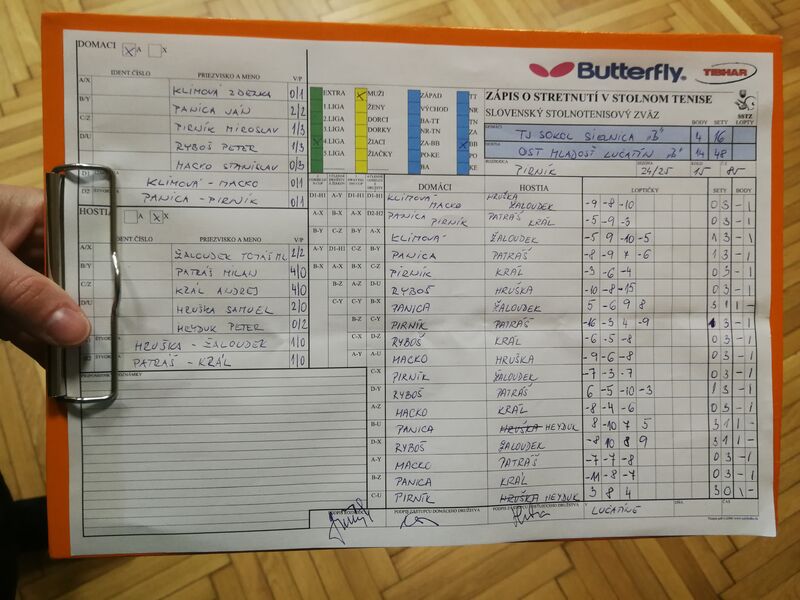 DOMÁCI X A X
IDENT.ČÍSLO PRIEZVISKO A MENO V/P
A/X KLÍMOVÁ ZDENKA 0/1
B/Y PANICA JÁN 2/2
C/Z PIRNÍK MIROSLAV 1/3
D/U RYBOŠ PETER 1/3
MACKO STANISLAV 0/3
KLÍMOVÁ - MACKO 0/1
D2 PANICA - PIRNÍK 0/1
HOSTIA A X X
IDENT.ČÍSLO PRIEZVISKO A MENO V/P
A/X ŽALOUDEK TOMÁŠ ML 2/2
B/Y PATRÁŠ MILAN 4/0
C/Z KRÁĽ ANDREJ 4/0
D/U HRUŠKA SAMUEL 2/0
HEYDUK PETER 0/2
HRUŠKA - ŽALOUDEK 1/0
PATRÁŠ - KRÁĽ 1/0
Butterfly TIBHAR
EXTRA X MUŽI ZÁPAD TT
1.LIGA ŽENY VÝCHOD NR
2.LIGA DORCI BA-TT TN
3.LIGA DORKY NR-TN ZA
X 4.LIGA ŽIACI ZA-BB X BB
5.LIGA ŽIAČKY PO-KE PO
BA KE
ZÁPIS O STRETNUTÍ V STOLNOM TENISE
SLOVENSKÝ STOLNOTENISOVÝ ZVÄZ SSTZ
BODY SETY LOPTY
DOMÁCI TJ SOKOL SIELNICA "B" 4 16
HOSTIA OŠT MLADOSŤ LUČATÍN "B" 14 48
ROZHODCA PIRNÍK 24/25 15 85
DOMÁCI HOSTIA LOPTIČKY SETY BODY
D1-H1 KLÍMOVÁ MACKO HRUŠKA ŽALOUDEK -9 -8 -10 0 3 - 1
D2-H2 PANICA PIRNÍK PATRÁŠ KRÁĽ -5 -9 -3 0 3 - 1
KLÍMOVÁ ŽALOUDEK -5 9 -10 -5 1 3 - 1
B-Y PANICA PATRÁŠ -8 -9 7 -6 1 3 - 1
C-Z PIRNÍK KRÁĽ -3 -6 -4 0 3 - 1
RYBOŠ HRUŠKA -10 -8 -15 0 3 - 1
B-X PANICA ŽALOUDEK 5 -6 9 8 3 1 1 -
C-Y PIRNÍK PATRÁŠ -16 -3 4 -9 1 3 - 1
RYBOŠ KRÁĽ -6 -5 -8 0 3 - 1
A-U MACKO HRUŠKA -9 -6 -8 0 3 - 1
C-X PIRNÍK ŽALOUDEK -7 -3 -7 0 3 - 1
D-Y RYBOŠ PATRÁŠ 6 -5 -10 -3 1 3 - 1
A-Z MACKO KRÁĽ -8 -4 -6 0 3 - 1
B-U PANICA HRUŠKA HEYDUK 8 -10 7 5 3 1 1 -
D-X RYBOŠ ŽALOUDEK -8 10 8 9 3 1 1 -
A-Y MACKO PATRÁŠ -7 -7 -8 0 3 - 1
B-Z PANICA KRÁĽ -11 -8 -7 0 3 - 1
C-U PIRNÍK HRUŠKA HEYDUK 3 8 4 3 0 1 -
PODPIS ZÁSTUPCU DOMÁCEHO DRUŽSTVA V LUČATÍNE DŇA ČAS